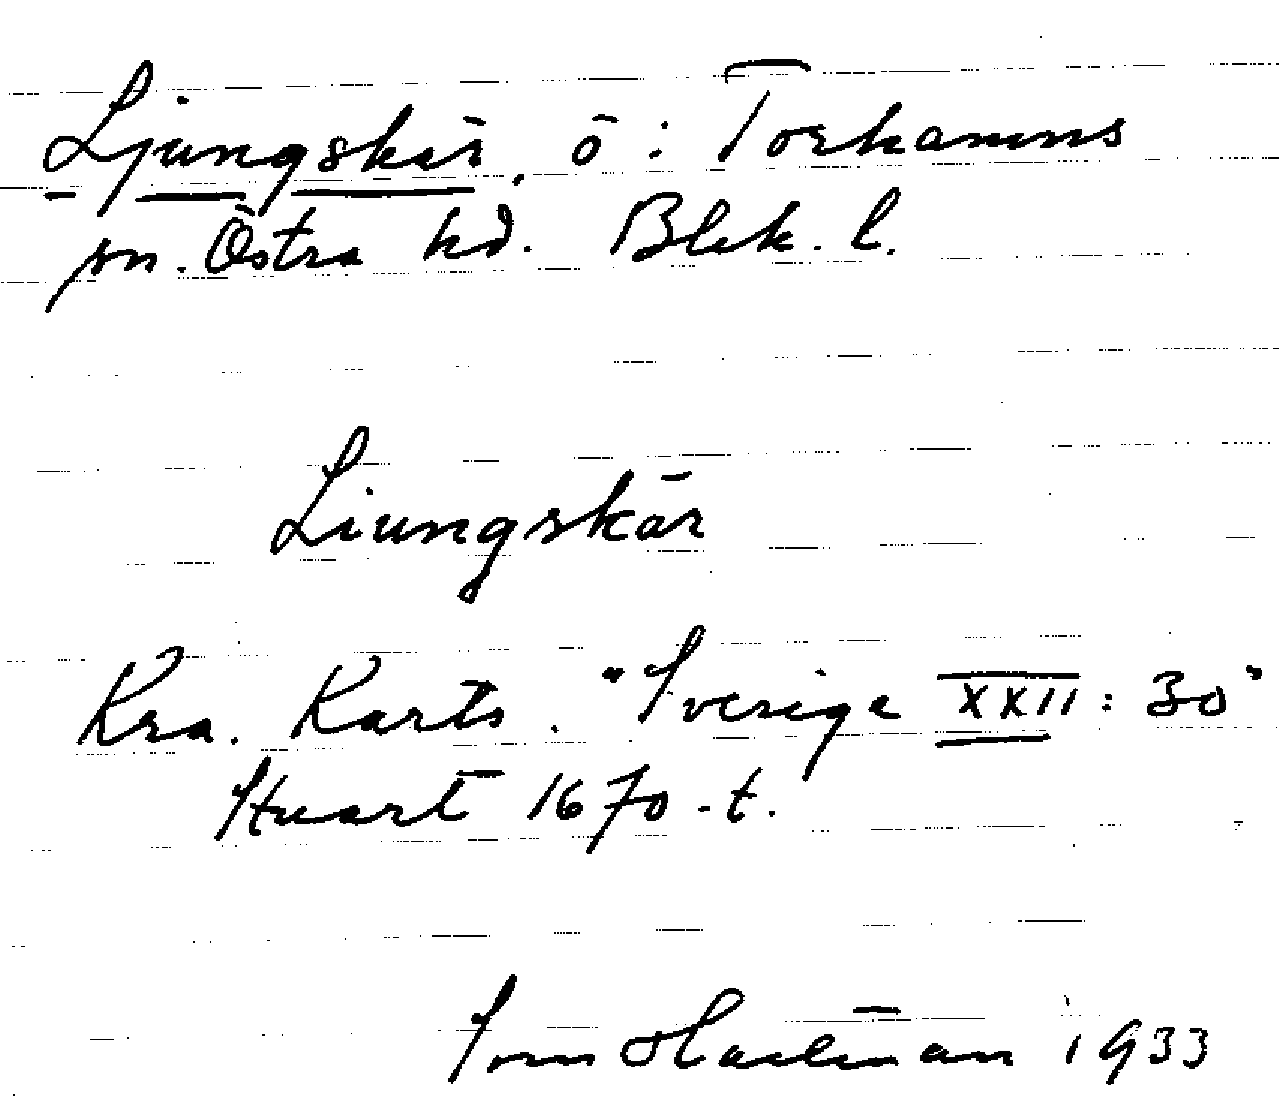 Ljungskär, ö i Torhamns
sn. Östra hd. Blek. l.
Liungskär
Kra. Karts. "Sverige XXII: 30"
Stuart 1670-t.
Sven Hallman 1933